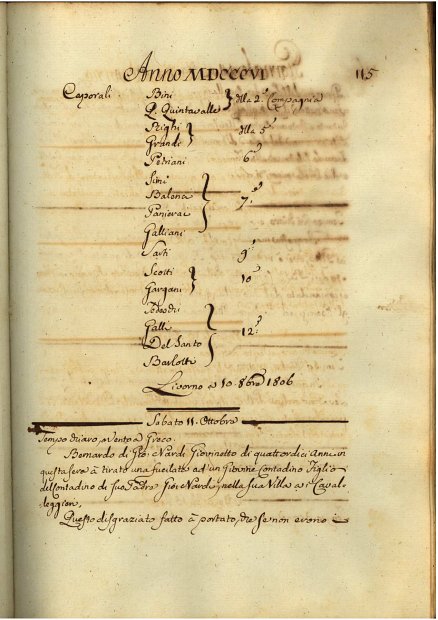 Anno MDCCCVI 115
Caporali Bini
Q. Quintavalle dlla 2.ª Compagnia
Righi
Grandi dlla 5ª
Petriani 6ª
Simi
Balena
Panierai 7.ª
Galliani
Sarti 9ª
Scotti
Gargani 10ª
Galli
Del Santo 12ª
Barlotti
Livorno a 10. 8bre 1806
Sabato 11. Ottobre
Tempo chiaro, e Vento a Greco
Bernardo di Gioi Nardi Giovinetto di quattordici Anni in
questa sera à tirato una fucilata ad un Giovine Contadino Figlio
del Contadino di suo Padre Gioi Nardi, nella sua Villa a i Caval-
leggieri.
Questo disgraziato fatto à portato, che se non erono